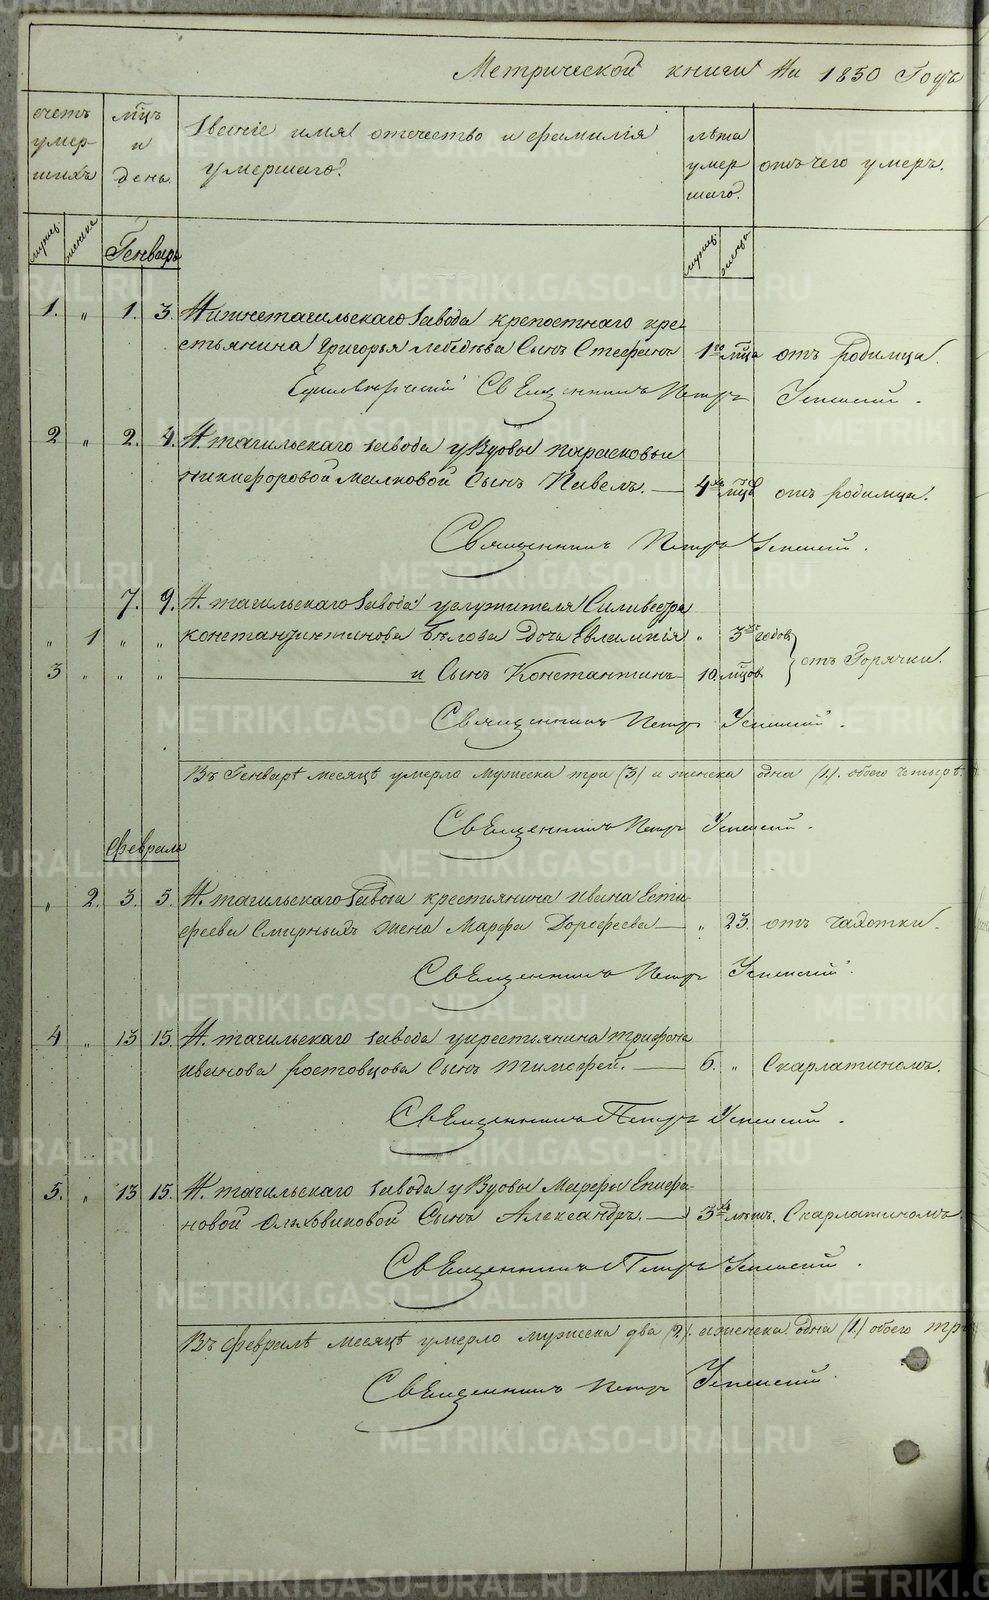 Метрической книги На 1850 Годъ
счетъ умер- шихъ
мцъ и день.
Званіе имя отечество и фамилія умершаго.
лѣта умер шаго.
отъ чего умеръ.
мужес. женска Генварь мужес. женск.
1. „ 1. 3. Нижнетагильскаго Завода крепостнаго кре-
стьянина Григорья Лебедѣва Сынъ Стефанъ 1го мца отъ родимца.
Единоверческій Священникъ Петръ Успенскій.
2 „ 2. 4. Н. тагильскаго завода у Вдовы Парасковьи
Никифоровой Малковой Сынъ Павелъ. — 4хъ мцъ отъ родимца.
Священникъ Петръ Успенскій.
7. 9. Н. тагильскаго Завода служителя Силивестра
„ 1 „ „ константинтинова Бѣлова Дочь Евлампія „ 3хъ годовъ
3 „ „ „ и Сынъ Константинъ 10. мцовъ } отъ Горячки.
Священникъ Петръ Успенскій.
Въ Генварѣ месяцѣ умерло мужеска три (3) и женска одна (1). обоего четыре.
Священникъ Петръ Успенскій.
Февраль
„ 2. 3. 5. Н. тагильскаго Завода крестьянина Ивана Естифеева
Смирныхъ жена Марфа Дорофеева — „ 23. отъ чахотки.
Священникъ Петръ Успенскій.
4 „ 13 15. Н. тагильскаго завода у крестьянина Трифона
Иванова Ростовцова Сынъ Тимофей. — 6. „ Скарлатиномъ.
Священникъ Петръ Успенскій.
5. „ 13 15. Н. тагильскаго завода у Вдовы Марфы Епифа-
новой Ольховиковой Сынъ Александръ. — 3хъ лѣтъ. Скарлатиномъ.
Священникъ Петръ Успенскій.
Въ Февралѣ месяцѣ умерло мужеска два (2). и женска одна (1.) обоего три
Священникъ Петръ Успенскій.
METRIKI.GASO-URAL.RU